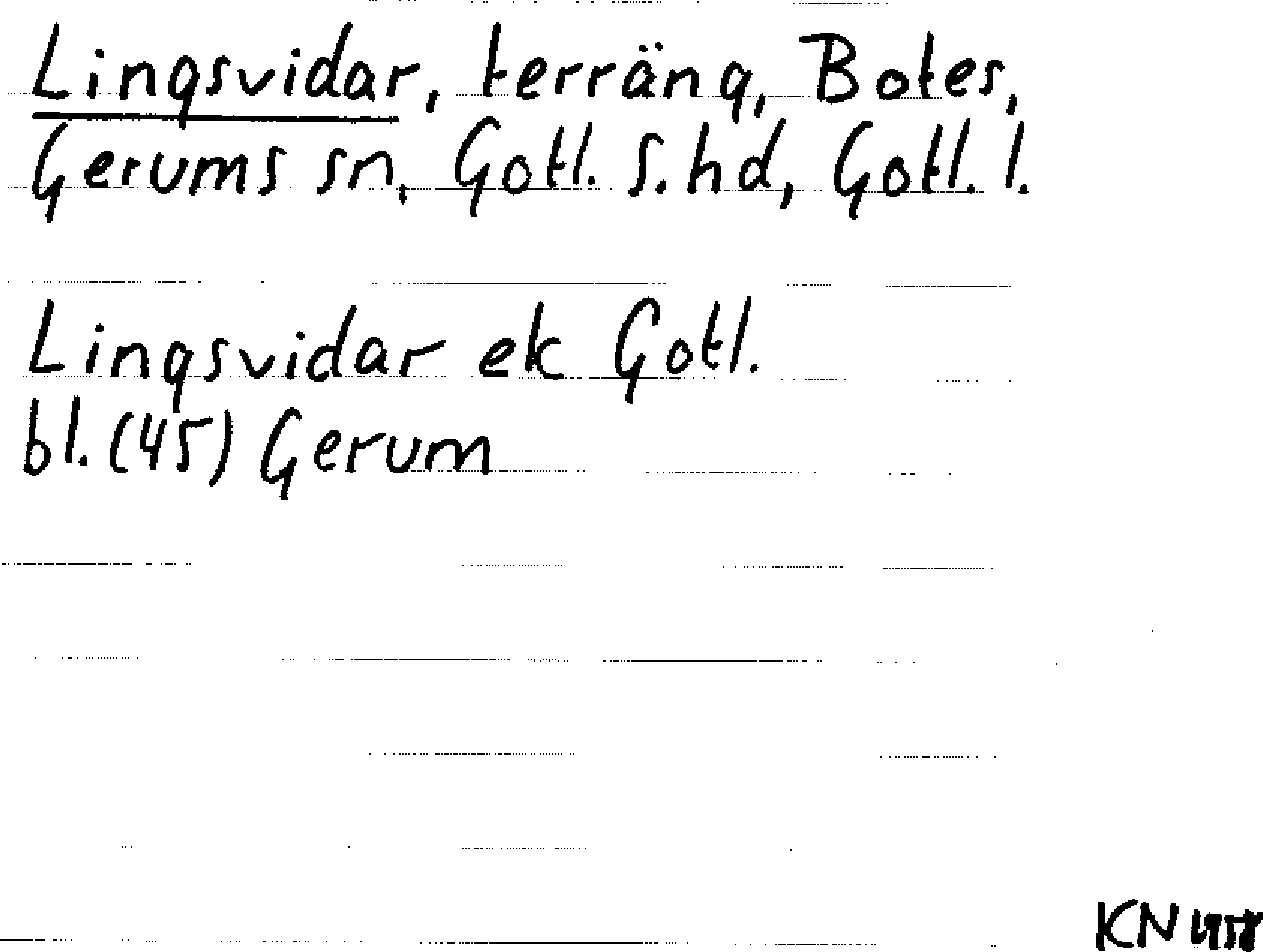 Lingsvidar, terräng, Botes,
Gerums sn, Gotl. S. hd, Gotl. l.
Lingsvidar ek Gotl.
bl. (45) Gerum
KN